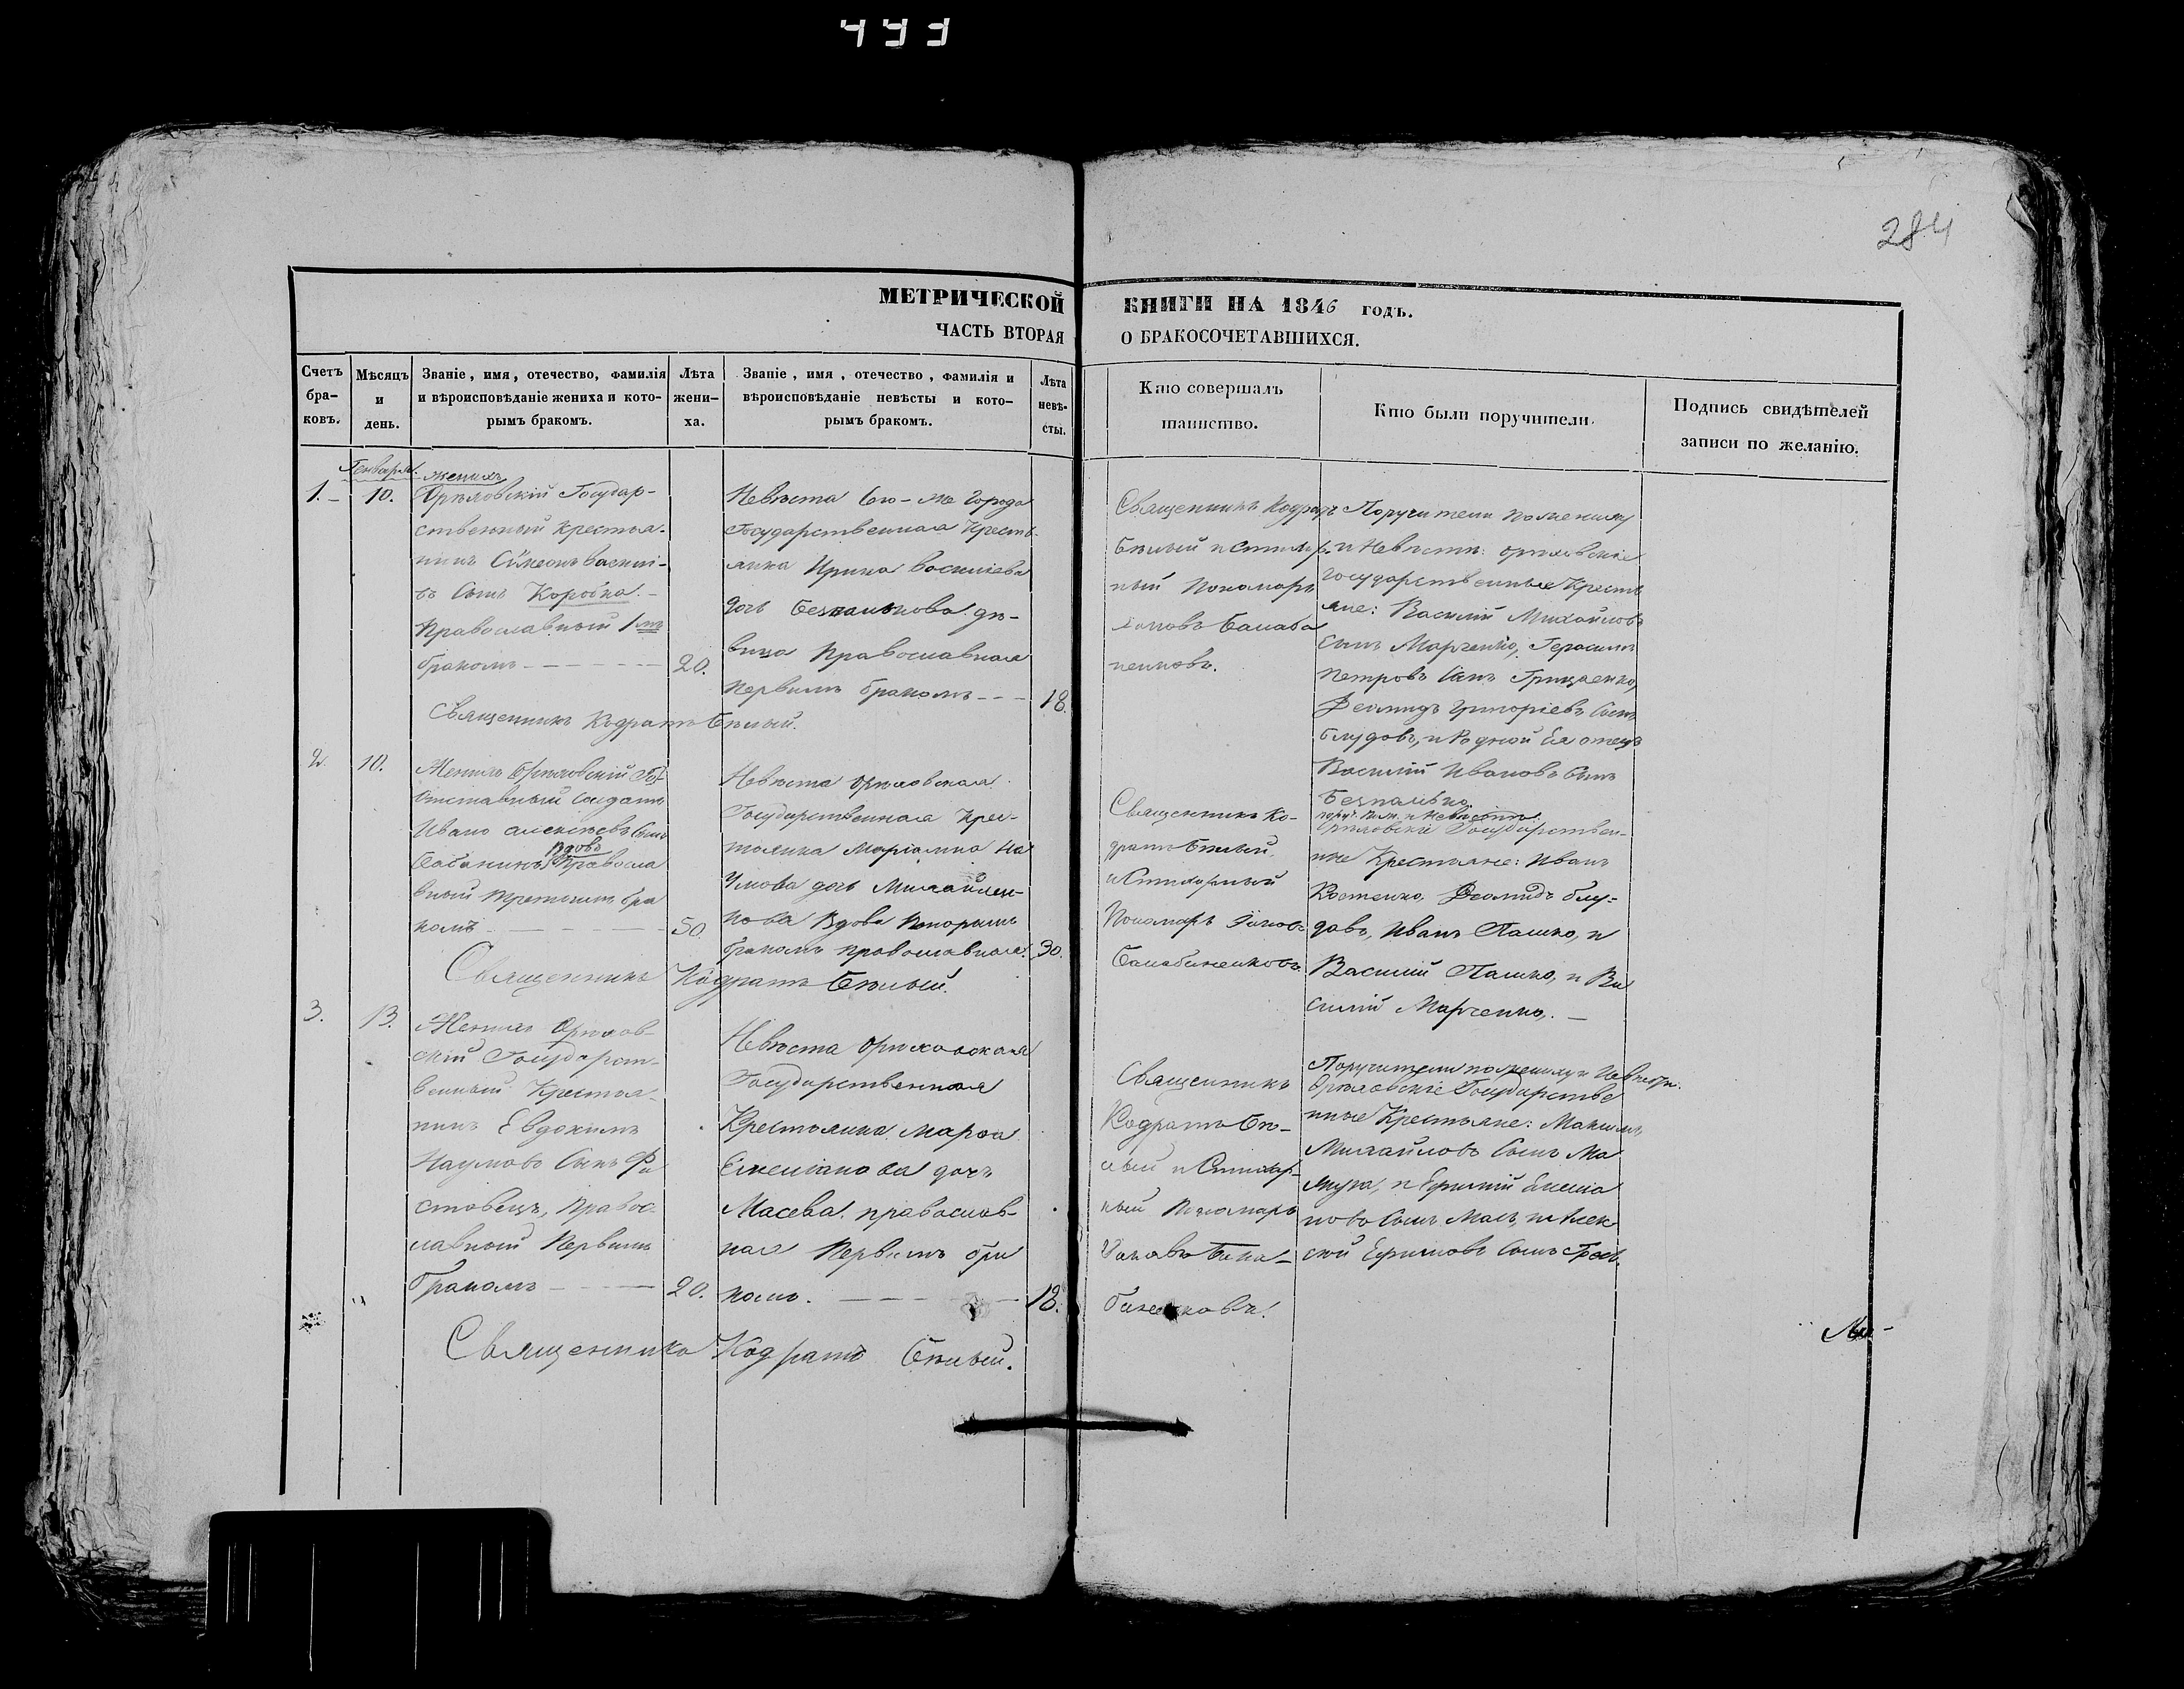 493
284
МЕТРИЧЕСКОЙ КНИГИ НА 1846 годъ.
ЧАСТЬ ВТОРАЯ О БРАКОСОЧЕТАВШИХСЯ.
Счетъ бра- ковъ.
Мѣсяцъ и день.
Званіе, имя, отечество, фамилія
и вѣроисповѣданіе жениха и кото-
рымъ бракомъ.
Лѣта жени- ха.
Званіе, имя, отечество, фамилія и
вѣроисповѣданіе невѣсты и кото-
рымъ бракомъ.
Лѣта невѣ- сты.
Кто совершалъ
таинство.
Кто были поручители.
Подпись свидѣтелей
записи по желанію.
Генваря
1. 10.
женихъ
Орѣховскій Государ-
ственный крестья-
нинъ Симеонъ василі-
въ Сынъ Коробка.
Православный 1мъ
бракомъ 20.
Невѣста его-же города
Государственная Кресть-
янка Ирина василіева
дочь Безпалькова дѣ-
вица Православная
Первымъ бракомъ 18.
Священникъ Кодратъ
Бѣлый и Стихар-
ный Пономарь
Іаковъ Балаба
ненковъ.
Поручители по жениху
и Невѣсти: орѣховскіе
Государственные Кресть
яне: Василій Михайловъ
Сынъ Марченко, Герасимъ
Петровъ Сынъ Грицаенко,
Деомидъ Григоріевъ Сынъ
блудовъ, и Родной Ея отецъ
Василій Ивановъ Сынъ
Безпалько.
Священникъ Кодратъ Бѣлый.
2. 10.
Женихъ Орѣховскій
Отставный Солдатъ
Иванъ алексѣевъ Сынъ
вдовъ
Правосла
вный третьимъ бра
комъ 50.
Невѣста орѣховская
Государственная Крес-
тьянка Маріамна На
умова дочь Михайлен-
кова Вдова вторымъ
бракомъ православная. 30.
Священникъ Ко-
дратъ Бѣлый
и Стихарный
Пономарь Іаковъ
Балабаненковъ
поруч. по ж. и Невѣсте.
Орѣховскіе Государствен-
ные Крестьяне: Иванъ
Костенко, Деомидъ блу-
довъ, Иванъ Пашко, и
Василій Пашко, и Ва
силій Марченко.
Священникъ Кодратъ Бѣлый.
3. 13.
Женихъ Орѣхов-
скій Государст-
венный Крестья-
нинъ Евдокимъ
Наумовъ Сынъ Фа
стовецъ, Правос-
лавный Первымъ
бракомъ 20.
Невѣста орѣховская
Государственная
Крестьянка Марѳа
Емеліанова дочь
Масева православ-
ная Первымъ бра
комъ. 18.
Священникъ
Кодратъ Бѣ-
лый и Стихар-
ный Пономарь
Іаковъ Бала-
баненковъ.
Поручители по жениху и Невѣсте.
Орѣховскіе Государстве
нные Крестьяне: Максимъ
Михайловъ Сынъ Ма
и Алек
сѣй Ефимовъ Сынъ
Священникъ Кодратъ Бѣлый.